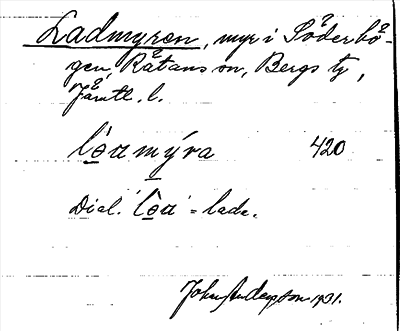 Ladmyren, myr i Söderhö-
gen, Rätans sn, Bergs tg,
Jämtl. l.
lo̲a̲ mý̲ra 420
Dial. 'lo̲a̲' = lada.
John Anderson 1931.